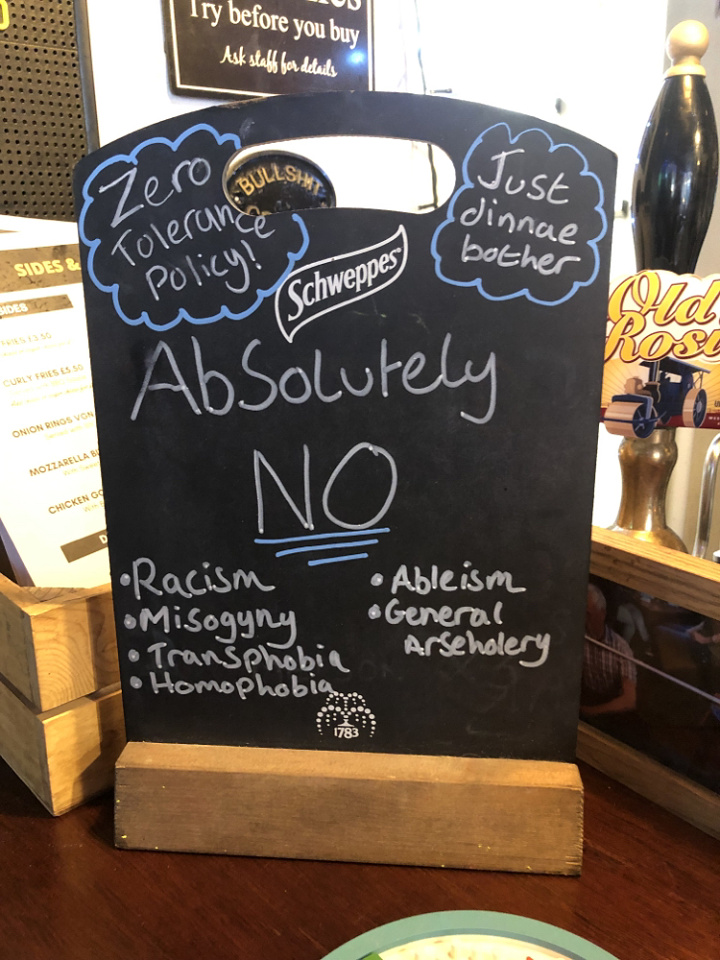 Try before you buy
Ask staff for details
BULLSHIT
Zero
Tolerance
Policy!
Just
dinnae
bother
Schweppes
Absolutely
NO
• Racism
• Misogyny
• Transphobia
• Homophobia
• Ableism
• General
Arseholery
1783
SIDES &
SIDES
FRIES £3.50
CURLY FRIES £5.50
ONION RINGS
MOZZARELLA
CHICKEN
Old